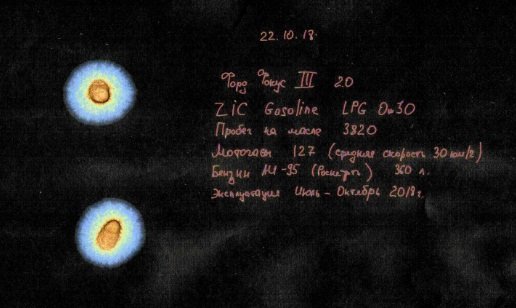 22.10.18.
Форд Фокус III 2.0
ZIC Gasoline LPG 0w30
Пробег на масле 3820
Моточасы 127 (средняя скорость 30 км/г)
Бензин АИ-95 (Роснефть) 360 л.
Эксплуатация Июль - Октябрь 2018г.